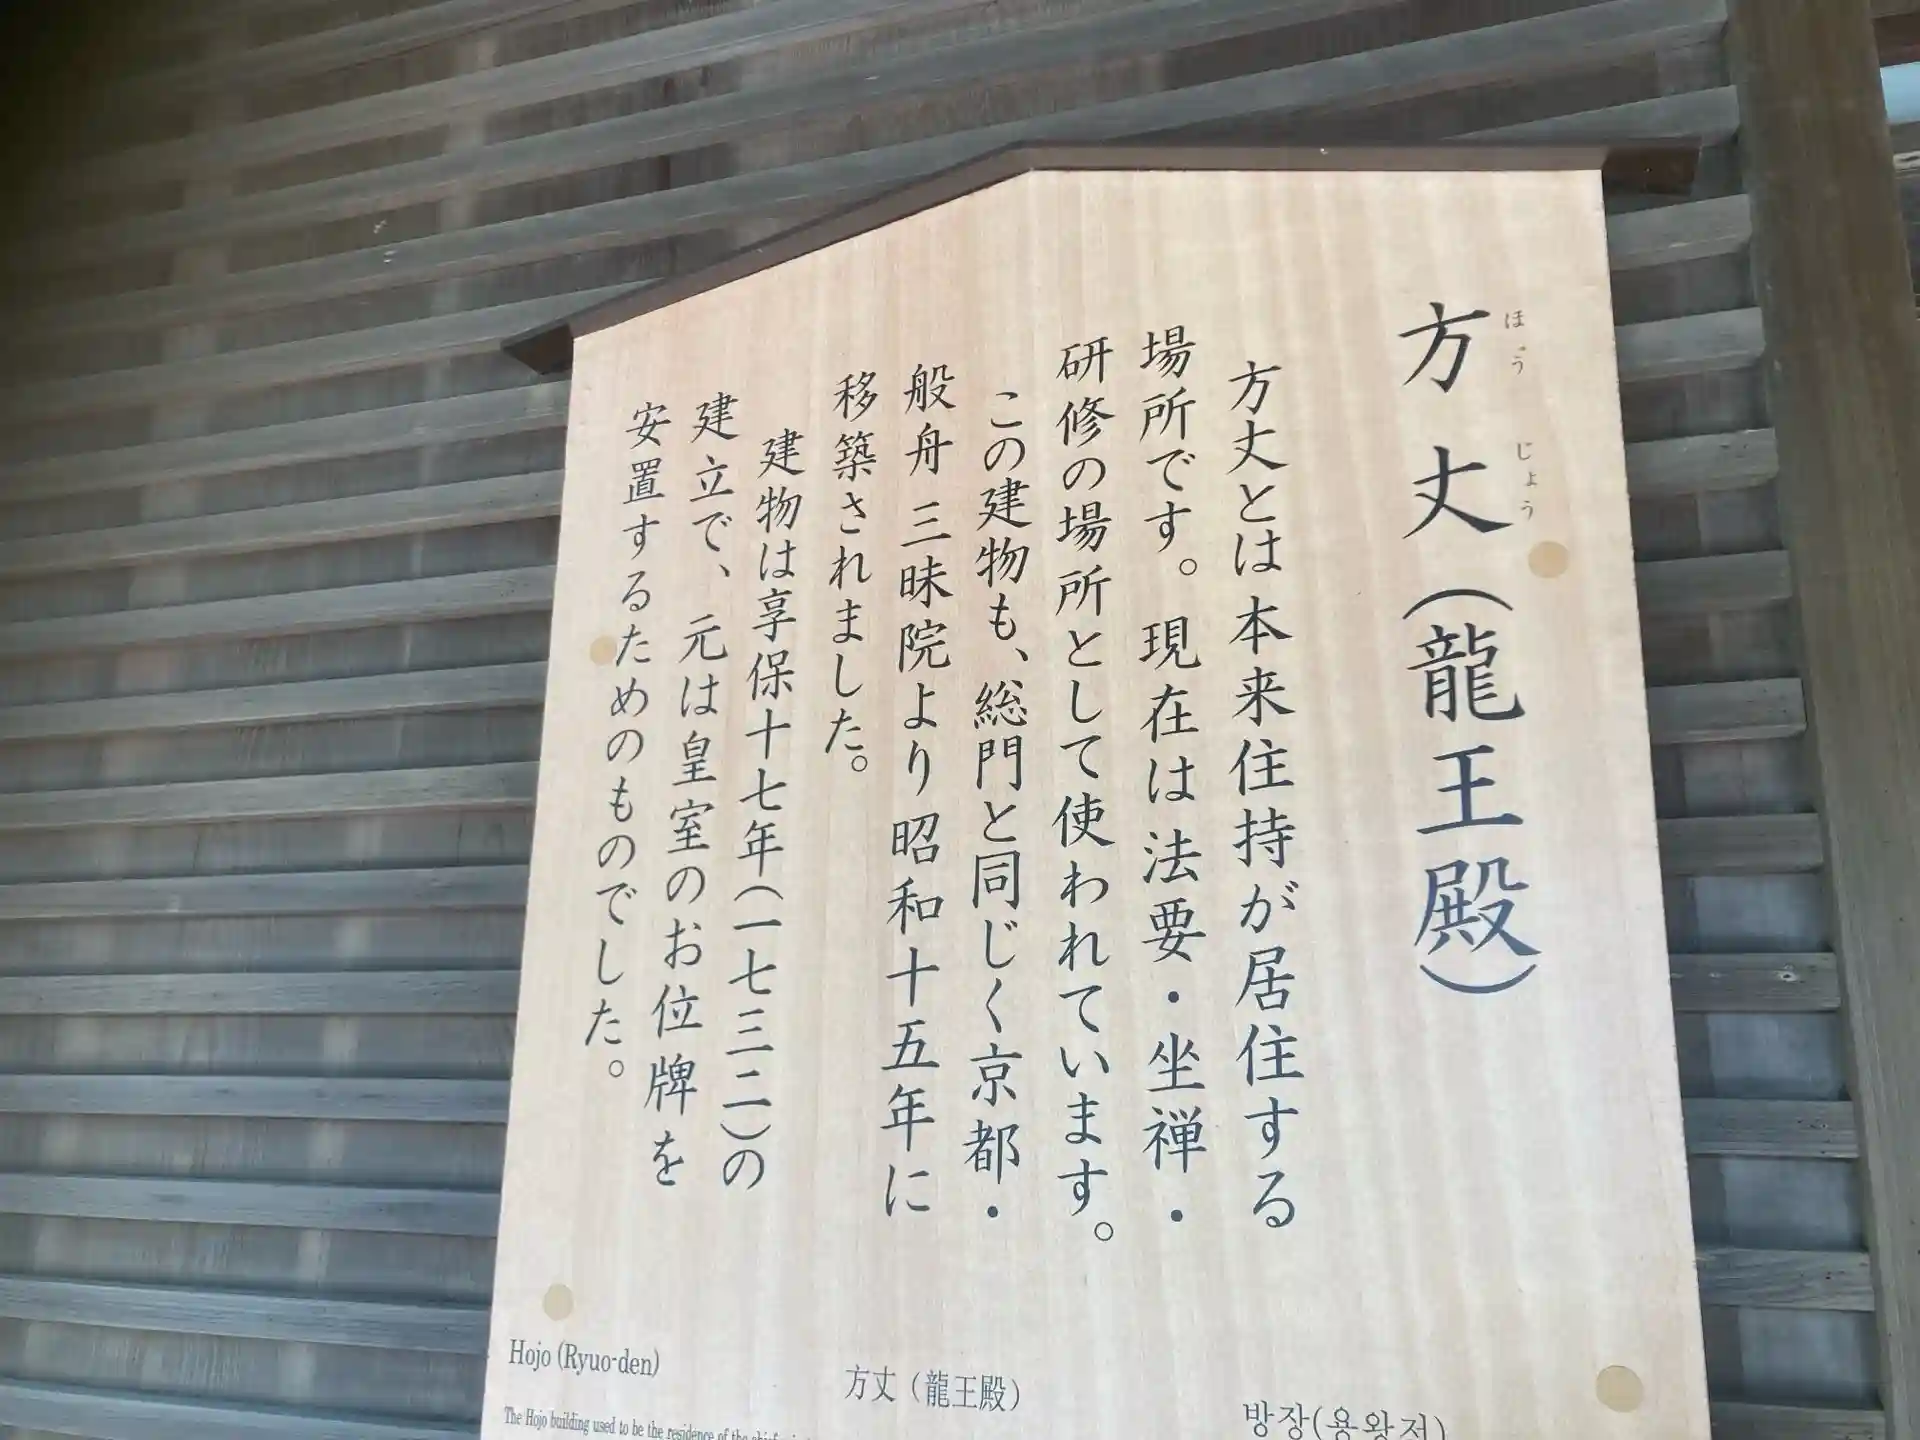 方丈（龍王殿）
ほう じょう
方丈とは本来住持が居住する
場所です。現在は法要・坐禅・
研修の場所として使われています。
この建物も、総門と同じく京都・
般舟三昧院より昭和十五年に
移築されました。
建物は享保十七年（一七三二）の
建立で、元は皇室のお位牌を
安置するためのものでした。
Hojo (Ryuo-den)
The Hojo building used to be the residence of the
方丈（龍王殿）
방장(용왕전)